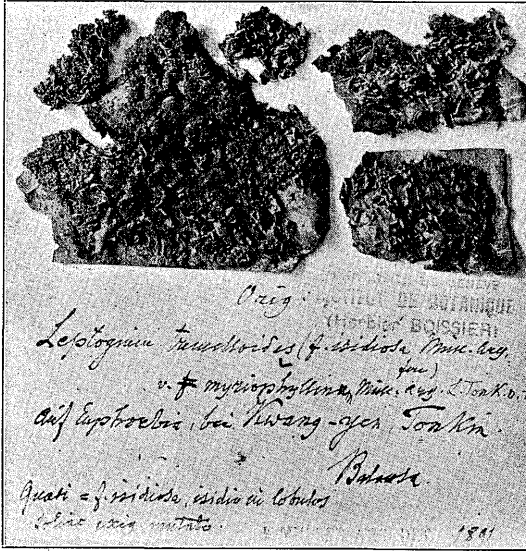 Orig.
GENÈVE
INSTITUT DE BOTANIQUE
(Herbier BOISSIER)
Leptogium tremelloides (f. isidiosa Müll. Arg.
fere)
v. myriophyllina, Müll. Arg. L. Tonk. n.
auf Euphorbia, bei Kwang-yen, Tonkin.
Balansa
Quasi = f. isidiosa, isidiis in lobulos
mutatis.
1891